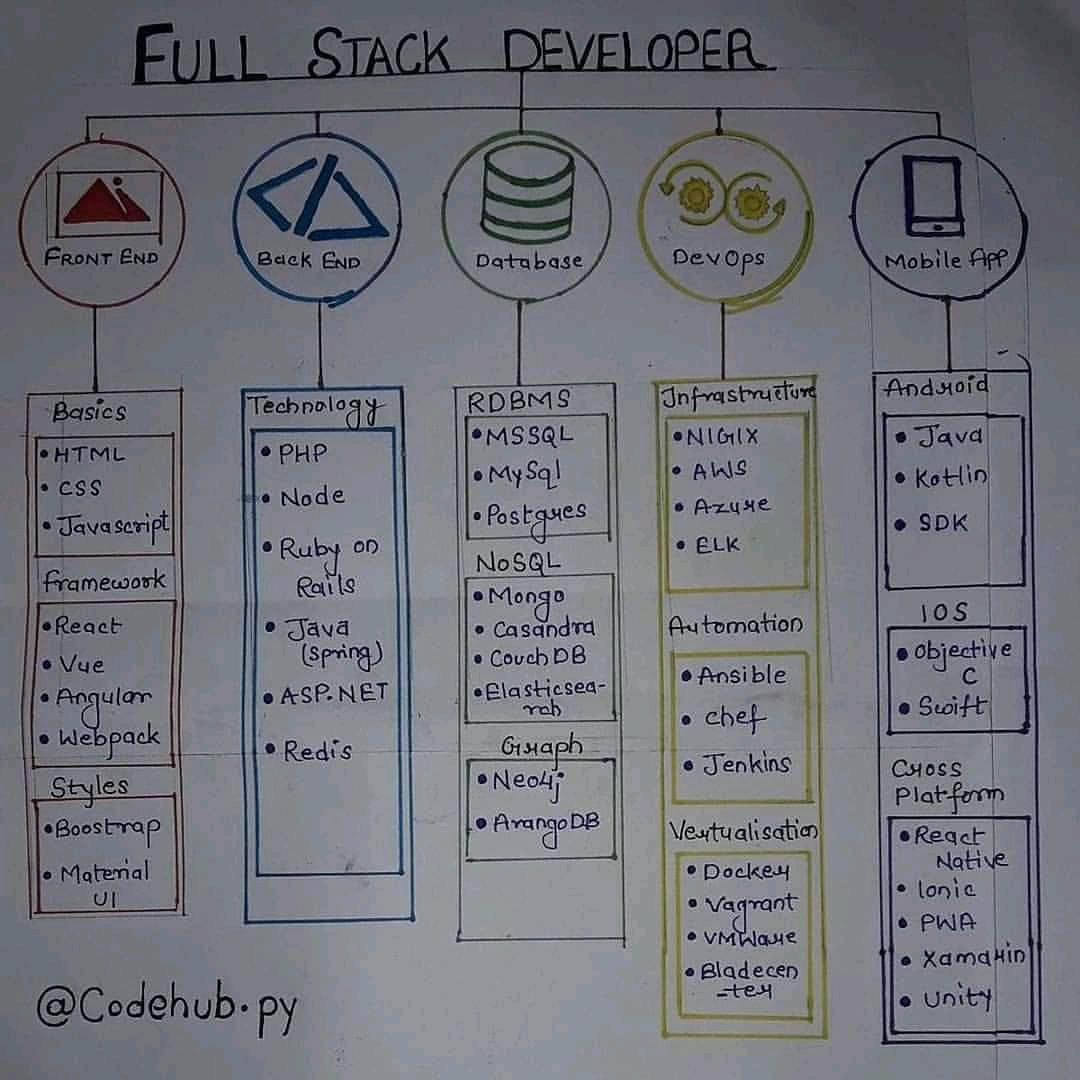 FULL STACK DEVELOPER
FRONT END
BACK END
Database
DevOps
Mobile App
Basics
• HTML
• CSS
• Javascript
framework
• React
• Vue
• Angular
• Webpack
Styles
• Boostrap
• Material
UI
Technology
• PHP
• Node
• Ruby on
Rails
• Java
(spring)
• ASP.NET
• Redis
RDBMS
• MSSQL
• MySql
• Postgres
NoSQL
• Mongo
• Casandra
• CouchDB
• Elasticsea-
rch
Graph
• Neo4j
• ArangoDB
Infrastructure
• NIGIX
• AWS
• Azure
• ELK
Automation
• Ansible
• chef
• Jenkins
Vertualisation
• Docker
• Vagrant
• VMWare
• Bladecen
-ter
Android
• Java
• Kotlin
• SDK
IOS
• Objective
C
• Swift
Cross
Platform
• React
Native
• Ionic
• PWA
• Xamarin
• Unity
@Codehub.py